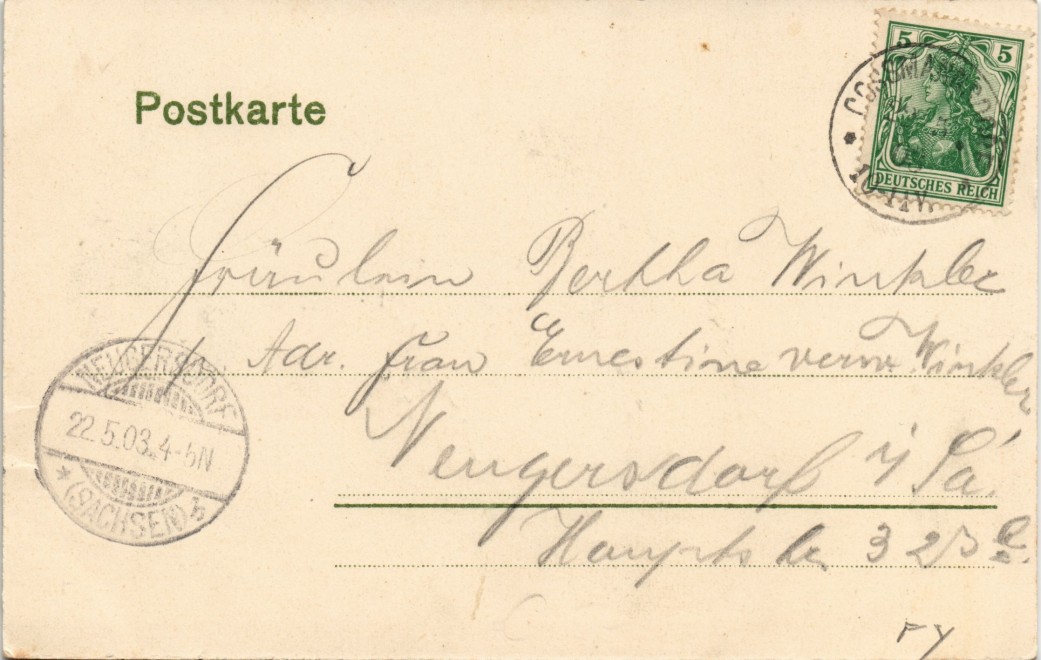 Postkarte
5 5
DEUTSCHES REICH
Fräulein Bertha Winkler
p. Adr. Frau Ernestine verw. Winkler
Neugersdorf i/Sa.
Hauptstr. 323
NEUGERSDORF
22.5.03.4-5N
*(SACHSEN)b